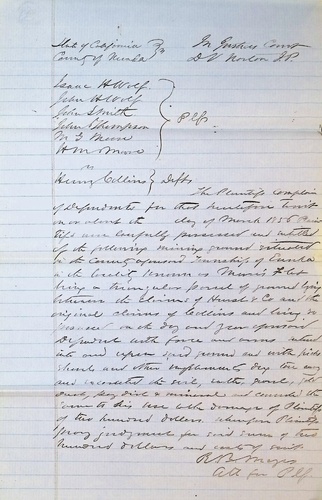 State of California } In Justice Court
County of Nevada D V Norton J P
Isaac H Wolf
John H Wolf
John Smith
John Thompson } Plfs
M. G. Moore
H M Moore
vs
Henry Collins } Defts
The Plaintiffs complain
of Defendants for that heretofore to wit
on or about the day of March 1856
were lawfully possessed and entitled
of the following mining ground situated
in the County aforesaid Township of Eureka
in the known as Flat
being a triangular parcel of ground lying
between the Claims of & Co and the
original claims of Collins and being so
possessed on the day and year aforesaid
Defendant with force and arms entered
into and upon said ground and with picks
shovels and other implements dug
and excavated the soil, earth, gold
dust, and mineral and
same to his use with damages of Plaintiffs
of two hundred dollars wherefore Plaintiffs
pray judgement for said sum of two
hundred dollars and costs of suit
Att for Plfs